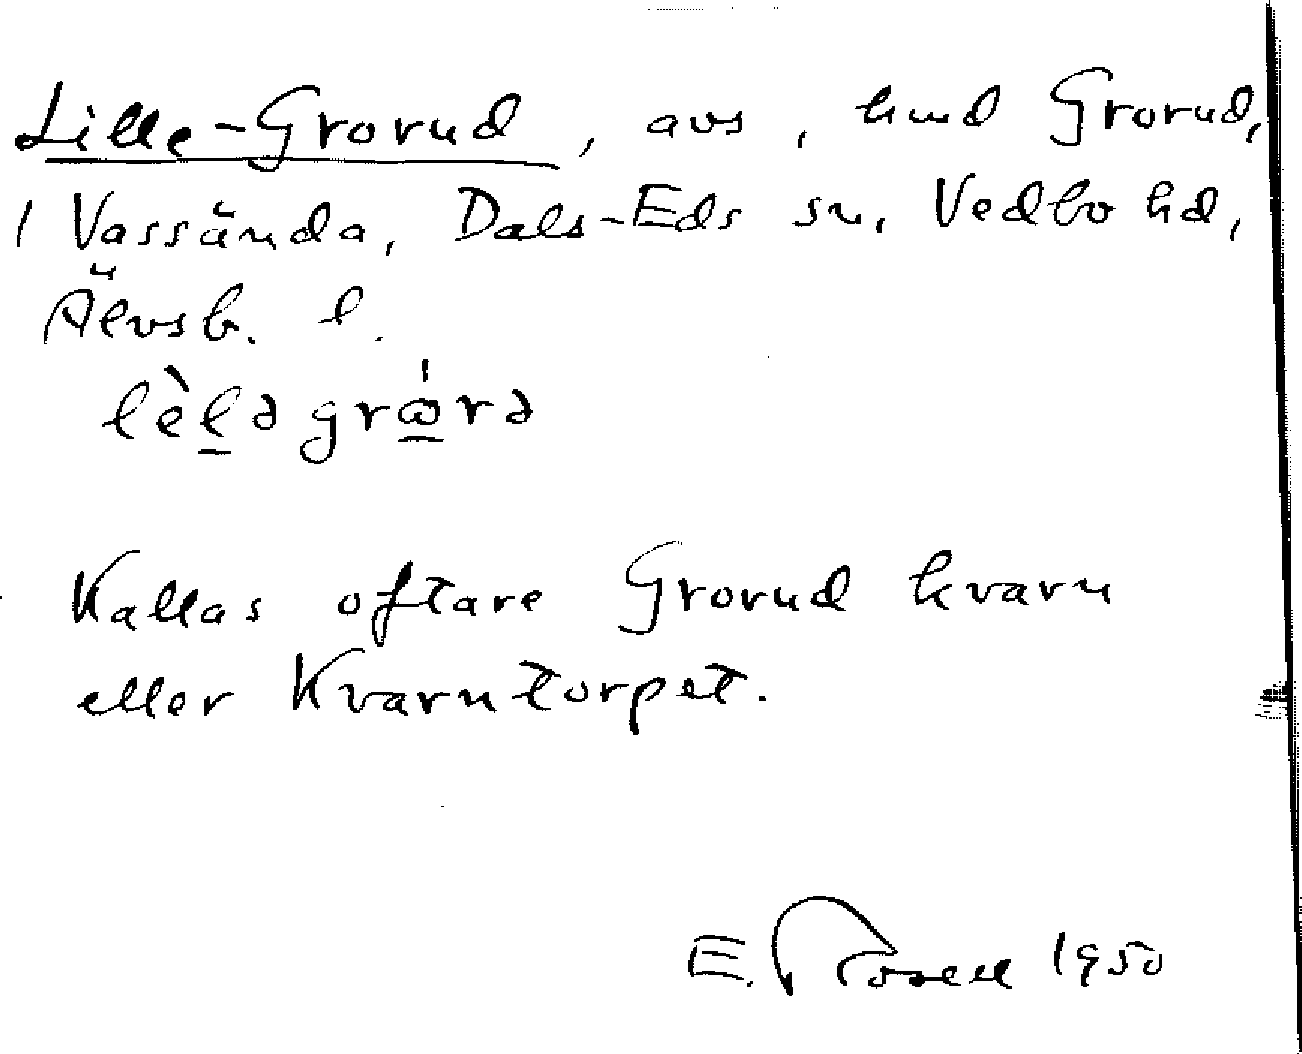 Lille-Grorud, avs, hmd Grorud,
1 Vassända, Dals-Eds sn, Vedbo hd,
Älvsb. l.
lèlə grω̇rə
Kallas oftare Grorud kvarn
eller Kvarntorpet.
E. Rosell 1950